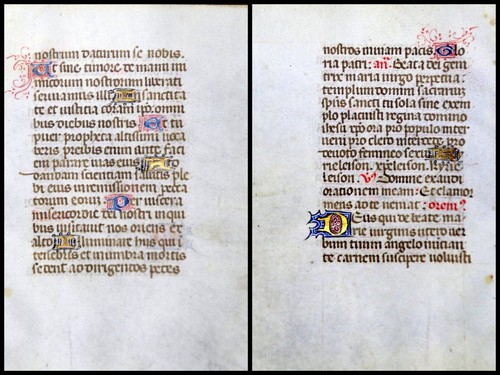 nostrum daturum se nobis.
Ut sine timore de manu ini
micorum nostrorum liberati
serviamus illi In sanctita
te et iusticia coram ipo. omni
bus diebus nostris Et tu
puer propheta altissimi voca
beris preibis enim ante faci
em parare vias eius Ad
dandam scientiam salutis ple
bi eius in remissionem pecca
torum eorum Per viscera
misericordie dei nostri in qui
bus visitavit nos oriens ex
alto Illuminare his qui i
tenebris et in umbra mortis
sedent ad dirigendos pedes
nostros in viam pacis. Glo
ria patri. an. Beata dei geni
trix maria virgo perpetua
templum domini sacrarium
spus sancti tu sola sine exem
plo placuisti regina domino
ihesu xpo ora pro populo inter
veni pro clero intercede pro
devoto femineo sexu Ky
rieleison. xpeleison. Kyrie
leison. V. Domine exaudi
orationem meam: Et clamor
meus ad te veniat: orem9
Deus qui de beate ma
rie virginis utero ver
bum tuum angelo nuncian
te carnem suscipere voluisti